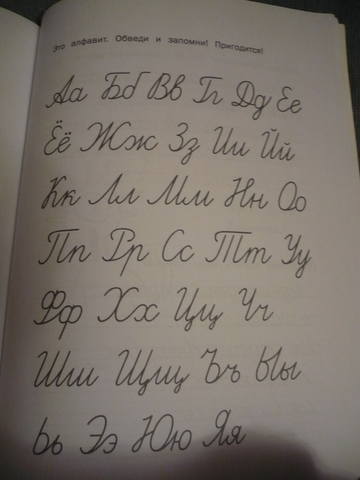 Это алфавит. Обведи и запомни! Пригодится!
Аа Бб Вв Гг Дд Ее
Ёё Жж Зз Ии Йй
Кк Лл Мм Нн Оо
Пп Рр Сс Тт Уу
Фф Хх Цц Чч
Шш Щщ Ъъ Ыы
Ьь Ээ Юю Яя